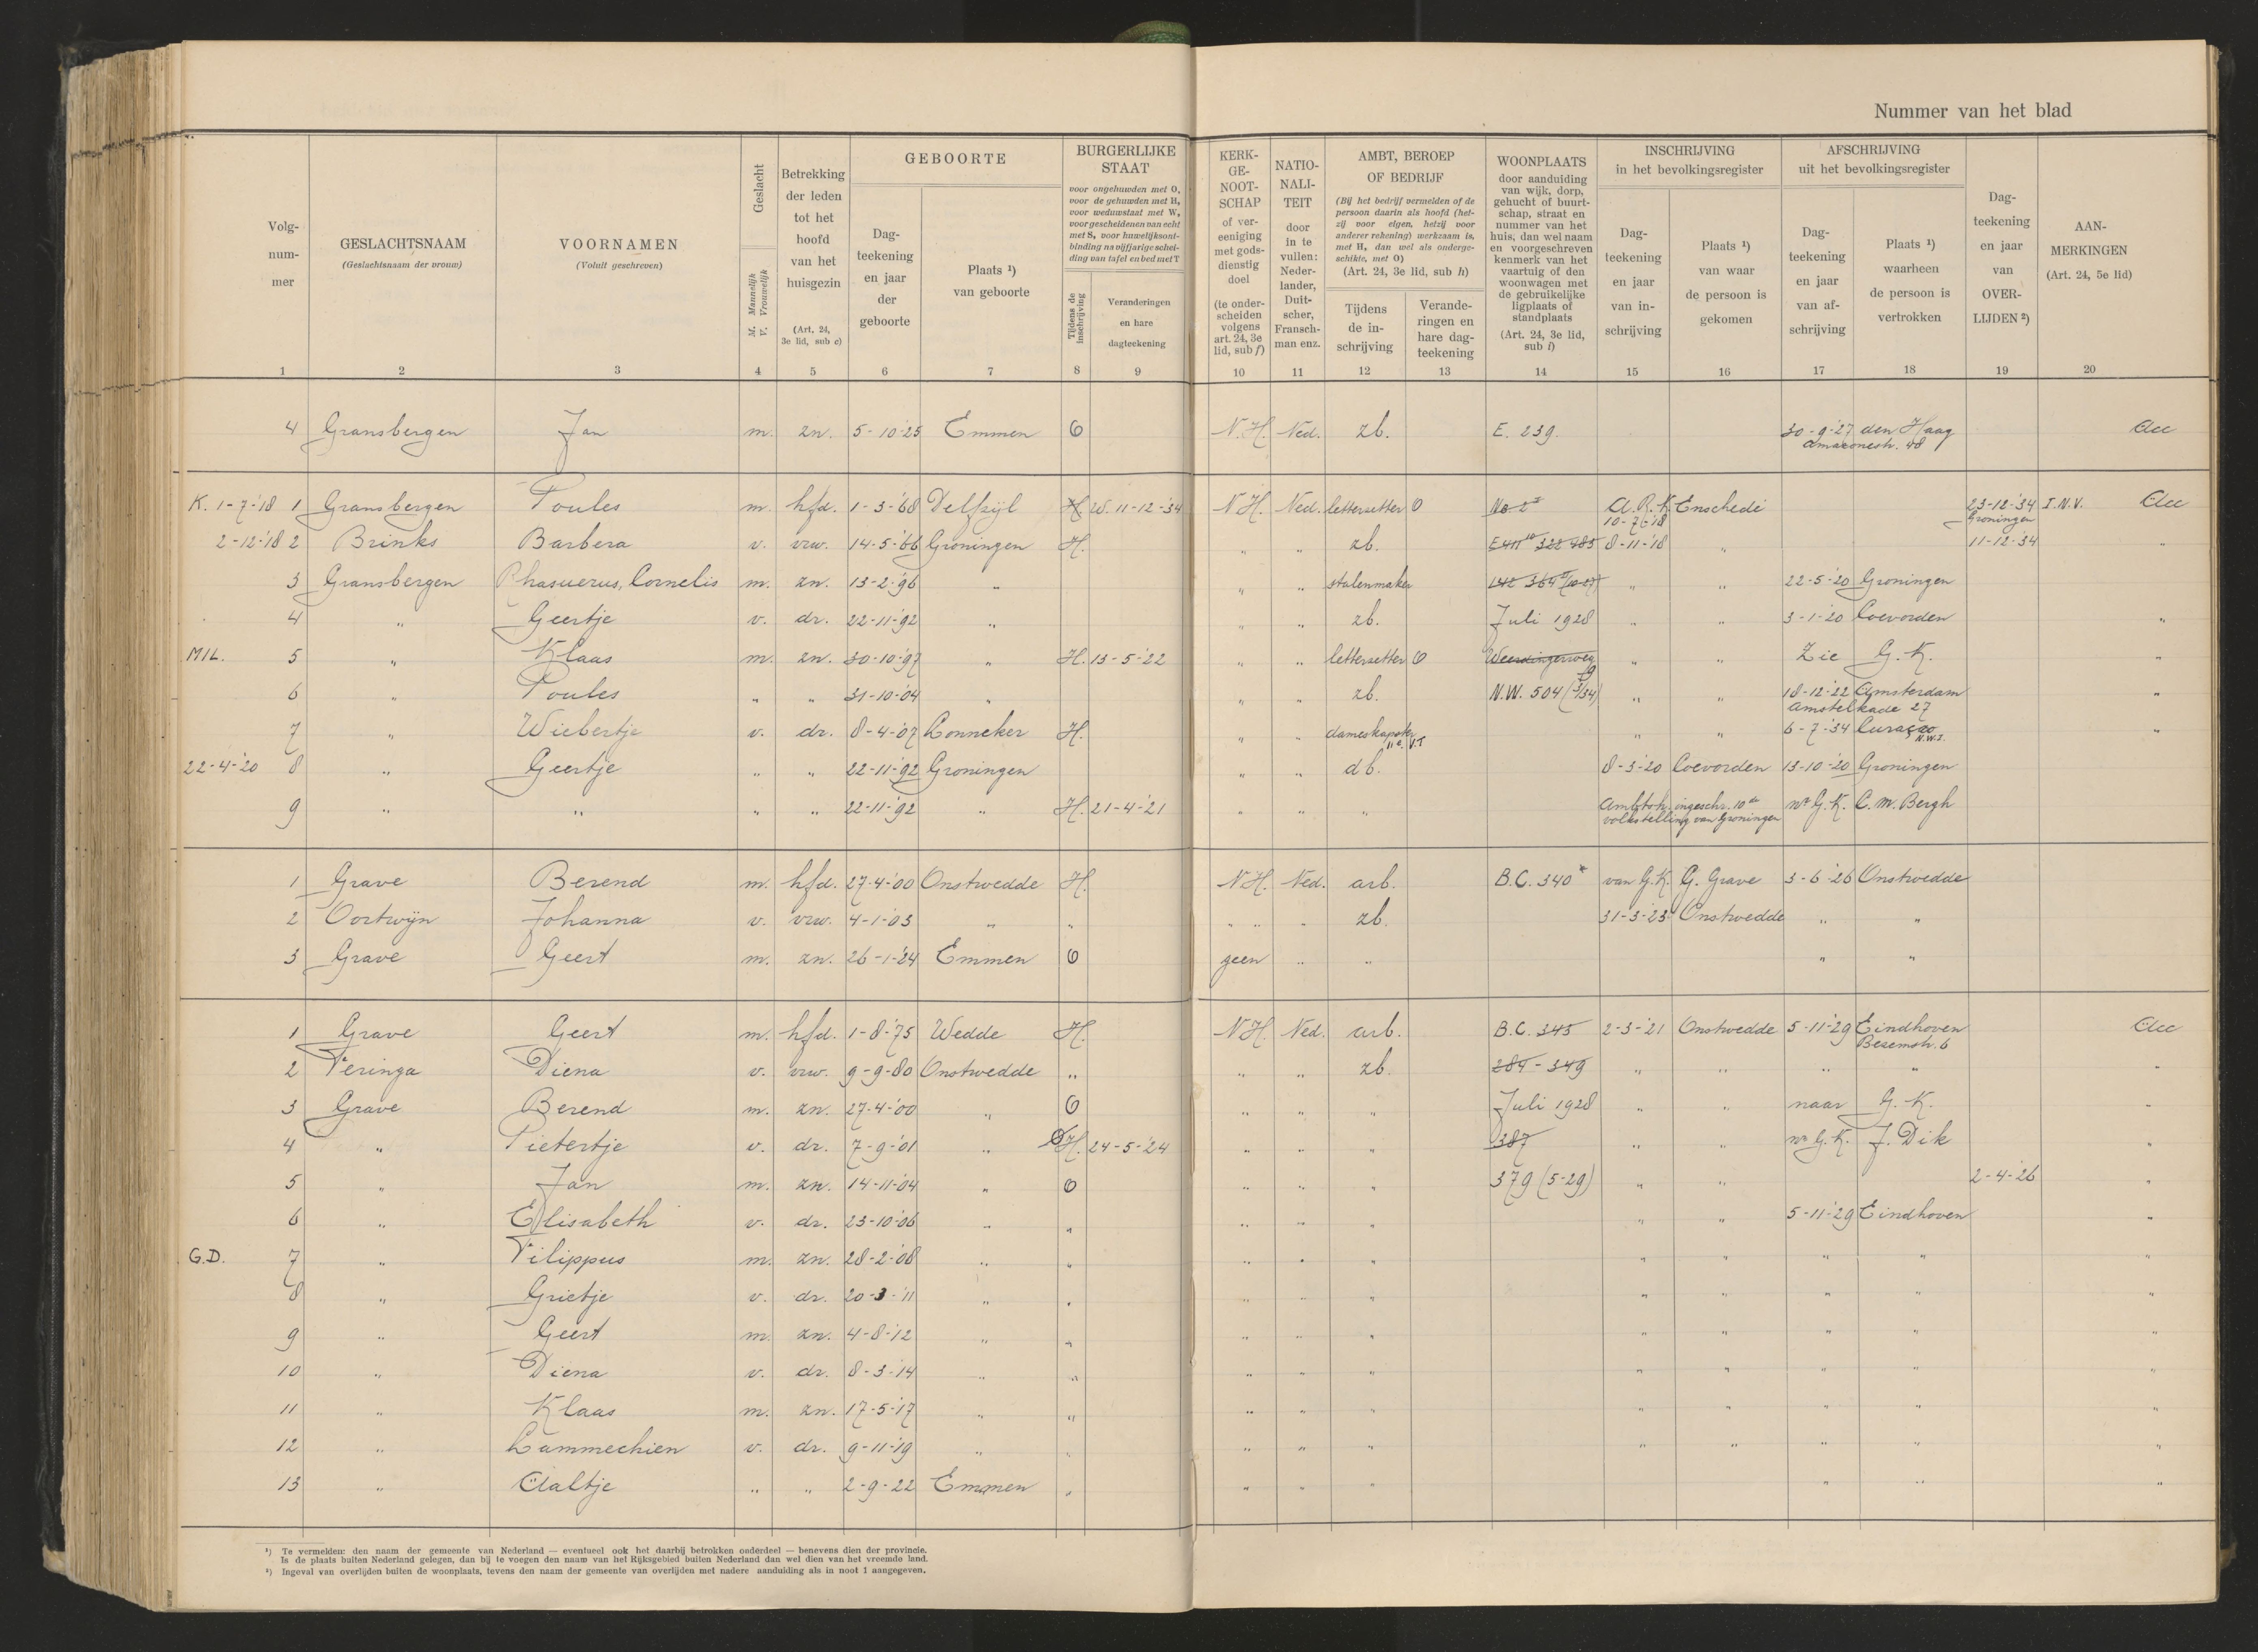 Nummer van het blad
Volg-nummer
GESLACHTSNAAM (Geslachtsnaam der vrouw)
VOORNAMEN (Voluit geschreven)
Geslacht M. Mannelijk V. Vrouwelijk
Betrekking der leden tot het hoofd van het huisgezin (Art. 24, 3e lid, sub c)
GEBOORTE
Dag-teekening en jaar der geboorte
Plaats ¹) van geboorte
BURGERLIJKE STAAT
voor ongehuwden met O, voor de gehuwden met H, voor weduwstaat met W, voor gescheidenen van echt met S, voor huwelijksont-binding na vijfjarige schei-ding van tafel en bed met T
Tijdens de inschrijving
Veranderingen en hare dagteekening
KERK-GE-NOOT-SCHAP of ver-eeniging met gods-dienstig doel (te onder-scheiden volgens art. 24, 3e lid, sub f)
NATIO-NALI-TEIT door in te vullen: Neder-lander, Duit-scher, Fransch-man enz.
AMBT, BEROEP OF BEDRIJF
(Bij het bedrijf vermelden of de persoon daarin als hoofd (het-zij voor eigen, hetzij voor anderer rekening) werkzaam is, met H, dan wel als onderge-schikte, met O)
(Art. 24, 3e lid, sub h)
Tijdens de in-schrijving
Verande-ringen en hare dag-teekening
WOONPLAATS door aanduiding van wijk, dorp, gehucht of buurt-schap, straat en nummer van het huis, dan wel naam en voorgeschreven kenmerk van het vaartuig of den woonwagen met de gebruikelijke ligplaats of standplaats (Art. 24, 3e lid, sub i)
INSCHRIJVING in het bevolkingsregister
Dag-teekening en jaar van in-schrijving
Plaats ¹) van waar de persoon is gekomen
AFSCHRIJVING uit het bevolkingsregister
Dag-teekening en jaar van af-schrijving
Plaats ¹) waarheen de persoon is vertrokken
Dag-teekening en jaar van OVER-LIJDEN ²)
AAN-MERKINGEN (Art. 24, 5e lid)
1 2 3 4 5 6 7 8 9 10 11 12 13 14 15 16 17 18 19 20
4 Gransbergen Jan m. zn. 5-10-'25 Emmen O N.H. Ned. zb. E. 239. 30-9-'27 den Haag
K. 1-7-'18 1 Gransbergen Poules m. hfd. 1-3-'68 Delfzijl H. W. 11-12-'34 N.H. Ned. letterzetter O A.R.K. Enschede 23-12-'34 I.N.V.
10-7-'18 Groningen
2-12-'18 2 Brinks Barbera v. vrw. 14-5-'66 Groningen H. „ „ zb. 8-11-'18 „ 11-12-'34 „
3 Gransbergen Ahasuerus, Cornelis m. zn. 13-2-'96 „ „ „ stalenmaker „ „ 22-5-'20 Groningen
4 „ Geertje v. dr. 22-11-'92 „ „ „ zb. Juli 1928 „ „ 3-1-'20 Coevorden „
MIL. 5 „ Klaas m. zn. 30-10-'97 „ H. 13-5-'22 „ „ letterzetter O Weerdingerweg „ „ Zie G.K. „
6 „ Poules „ „ 31-10-'04 „ „ „ zb. N.W. 504 „ „ 18-12-'22 Amsterdam „
Amstelkade 27
7 „ Wiebertje v. dr. 8-4-'07 Lonneker H. „ „ dameskapster V.T „ „ 6-7-'34 Curaçao N.W.I. „
22-4-'20 8 „ Geertje „ „ 22-11-'92 Groningen db. 8-3-'20 Coevorden 13-10-'20 Groningen
9 „ „ „ „ 22-11-'92 „ H. 21-4-'21 „ „ „ Ambtsh. ingeschr. 10de nr G.K. C.M. Bergh
volkstelling van Groningen
1 Grave Berend m. hfd. 27-4-'00 Onstwedde H. N.H. Ned. arb. B.C. 340 van G.K. G. Grave 3-6-'26 Onstwedde
2 Oortwijn Johanna v. vrw. 4-1-'03 „ „ „ „ „ zb. 31-3-'23 Onstwedde „ „
3 Grave Geert m. zn. 26-1-'24 Emmen O geen „ „ „ „
1 Grave Geert m. hfd. 1-8-'75 Wedde H. N.H. Ned. arb. B.C. 345 2-3-'21 Onstwedde 5-11-'29 Eindhoven
Bezemstr. 6
2 Teringa Diena v. vrw. 9-9-80 Onstwedde „ „ „ zb. 284 - 349 „ „ „ „ „
3 Grave Berend m. zn. 27-4-'00 „ O „ „ „ Juli 1928 „ „ naar G.K. „
4 „ Pietertje v. dr. 7-9-'01 „ O H. 24-5-'24 „ „ „ 387 „ „ nr G.K. J. Dik „
5 „ Jan m. zn. 14-11-'04 „ O „ „ „ 379 (5-29) „ „ 2-4-'26 „
6 „ Elisabeth v. dr. 23-10-'06 „ „ „ „ „ „ „ 5-11-'29 Eindhoven „
G.D. 7 „ Filippus m. zn. 28-2-'08 „ „ „ „ „ „ „ „ „ „
8 „ Grietje v. dr. 20-3-'11 „ „ „ „ „ „ „ „ „ „
9 „ Geert m. zn. 4-8-'12 „ „ „ „ „ „ „ „ „ „
10 „ Diena v. dr. 8-3-'14 „ „ „ „ „ „ „ „ „ „
11 „ Klaas m. zn. 17-5-'17 „ „ „ „ „ „ „ „ „ „
12 „ Lammechien v. dr. 9-11-'19 „ „ „ „ „ „ „ „ „ „
13 „ Aaltje „ „ 2-9-22 Emmen „ „ „ „ „ „ „
¹) Te vermelden: den naam der gemeente van Nederland — eventueel ook het daarbij betrokken onderdeel — benevens dien der provincie.
Is de plaats buiten Nederland gelegen, dan bij te voegen den naam van het Rijksgebied buiten Nederland dan wel dien van het vreemde land.
²) Ingeval van overlijden buiten de woonplaats, tevens den naam der gemeente van overlijden met nadere aanduiding als in noot 1 aangegeven.